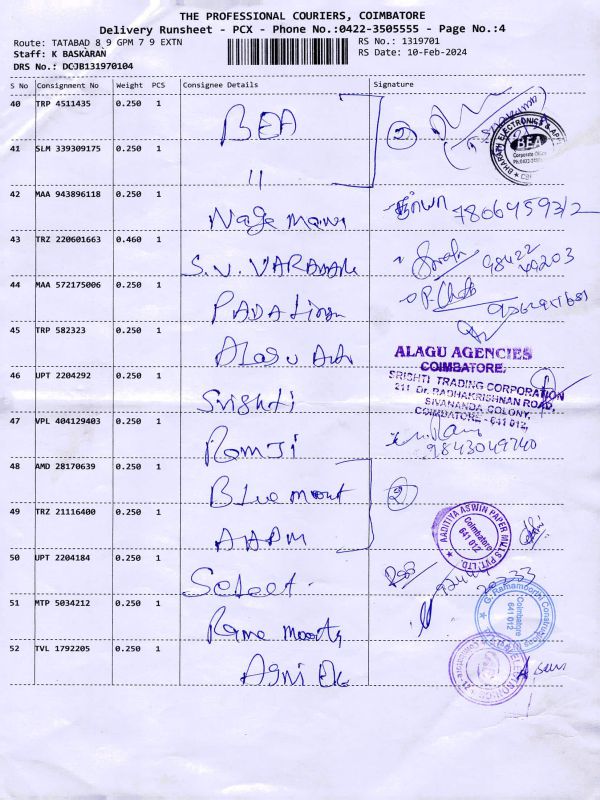 THE PROFESSIONAL COURIERS, COIMBATORE
Delivery Runsheet - PCX - Phone No.:0422-3505555 - Page No.:4
Route: TATABAD 8 9 GPM 7 9 EXTN
RS No.: 1319701
Staff: K BASKARAN
RS Date: 10-Feb-2024
DRS No.: DCJB131970104
S No Consignment No Weight PCS Consignee Details Signature
40 TRP 4511435 0.250 1 BEA 2
BHARATH ELECTRONICS & APP
BEA
Corporate Office
41 SLM 339309175 0.250 1 11
42 MAA 943896118 0.250 1 Naga mani 7806459312
43 TRZ 220601663 0.460 1 S.V. VARADARAJ 98422 49203
44 MAA 572175006 0.250 1
45 TRP 582323 0.250 1 Alagu
ALAGU AGENCIES
COIMBATORE.
46 UPT 2204292 0.250 1 Srishti
SRISHTI TRADING CORPORATION
211 Dr. RADHAKRISHNAN ROAD,
SIVANANDA COLONY,
COIMBATORE - 641 012,
47 VPL 404129403 0.250 1 RamJi 9843049740
48 AMD 28170639 0.250 1 Blue mount 2
49 TRZ 21116400 0.250 1 AAPM
AADITYA ASWIN PAPER MILLS PVT. LTD.
Coimbatore
641 012
50 UPT 2204184 0.250 1 Select
51 MTP 5034212 0.250 1 Rama moorty
G. Ramamoorthi Constructions
Coimbatore
641 012
52 TVL 1792205 0.250 1 Agni